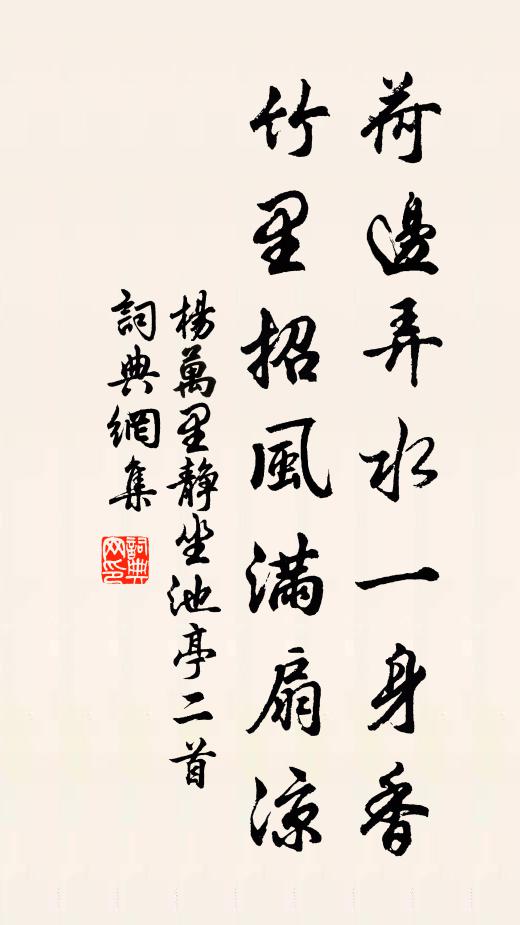 荷邊弄水一身香
竹里招風滿扇涼
楊萬里靜坐池亭二首
詞典網集
詞典網印